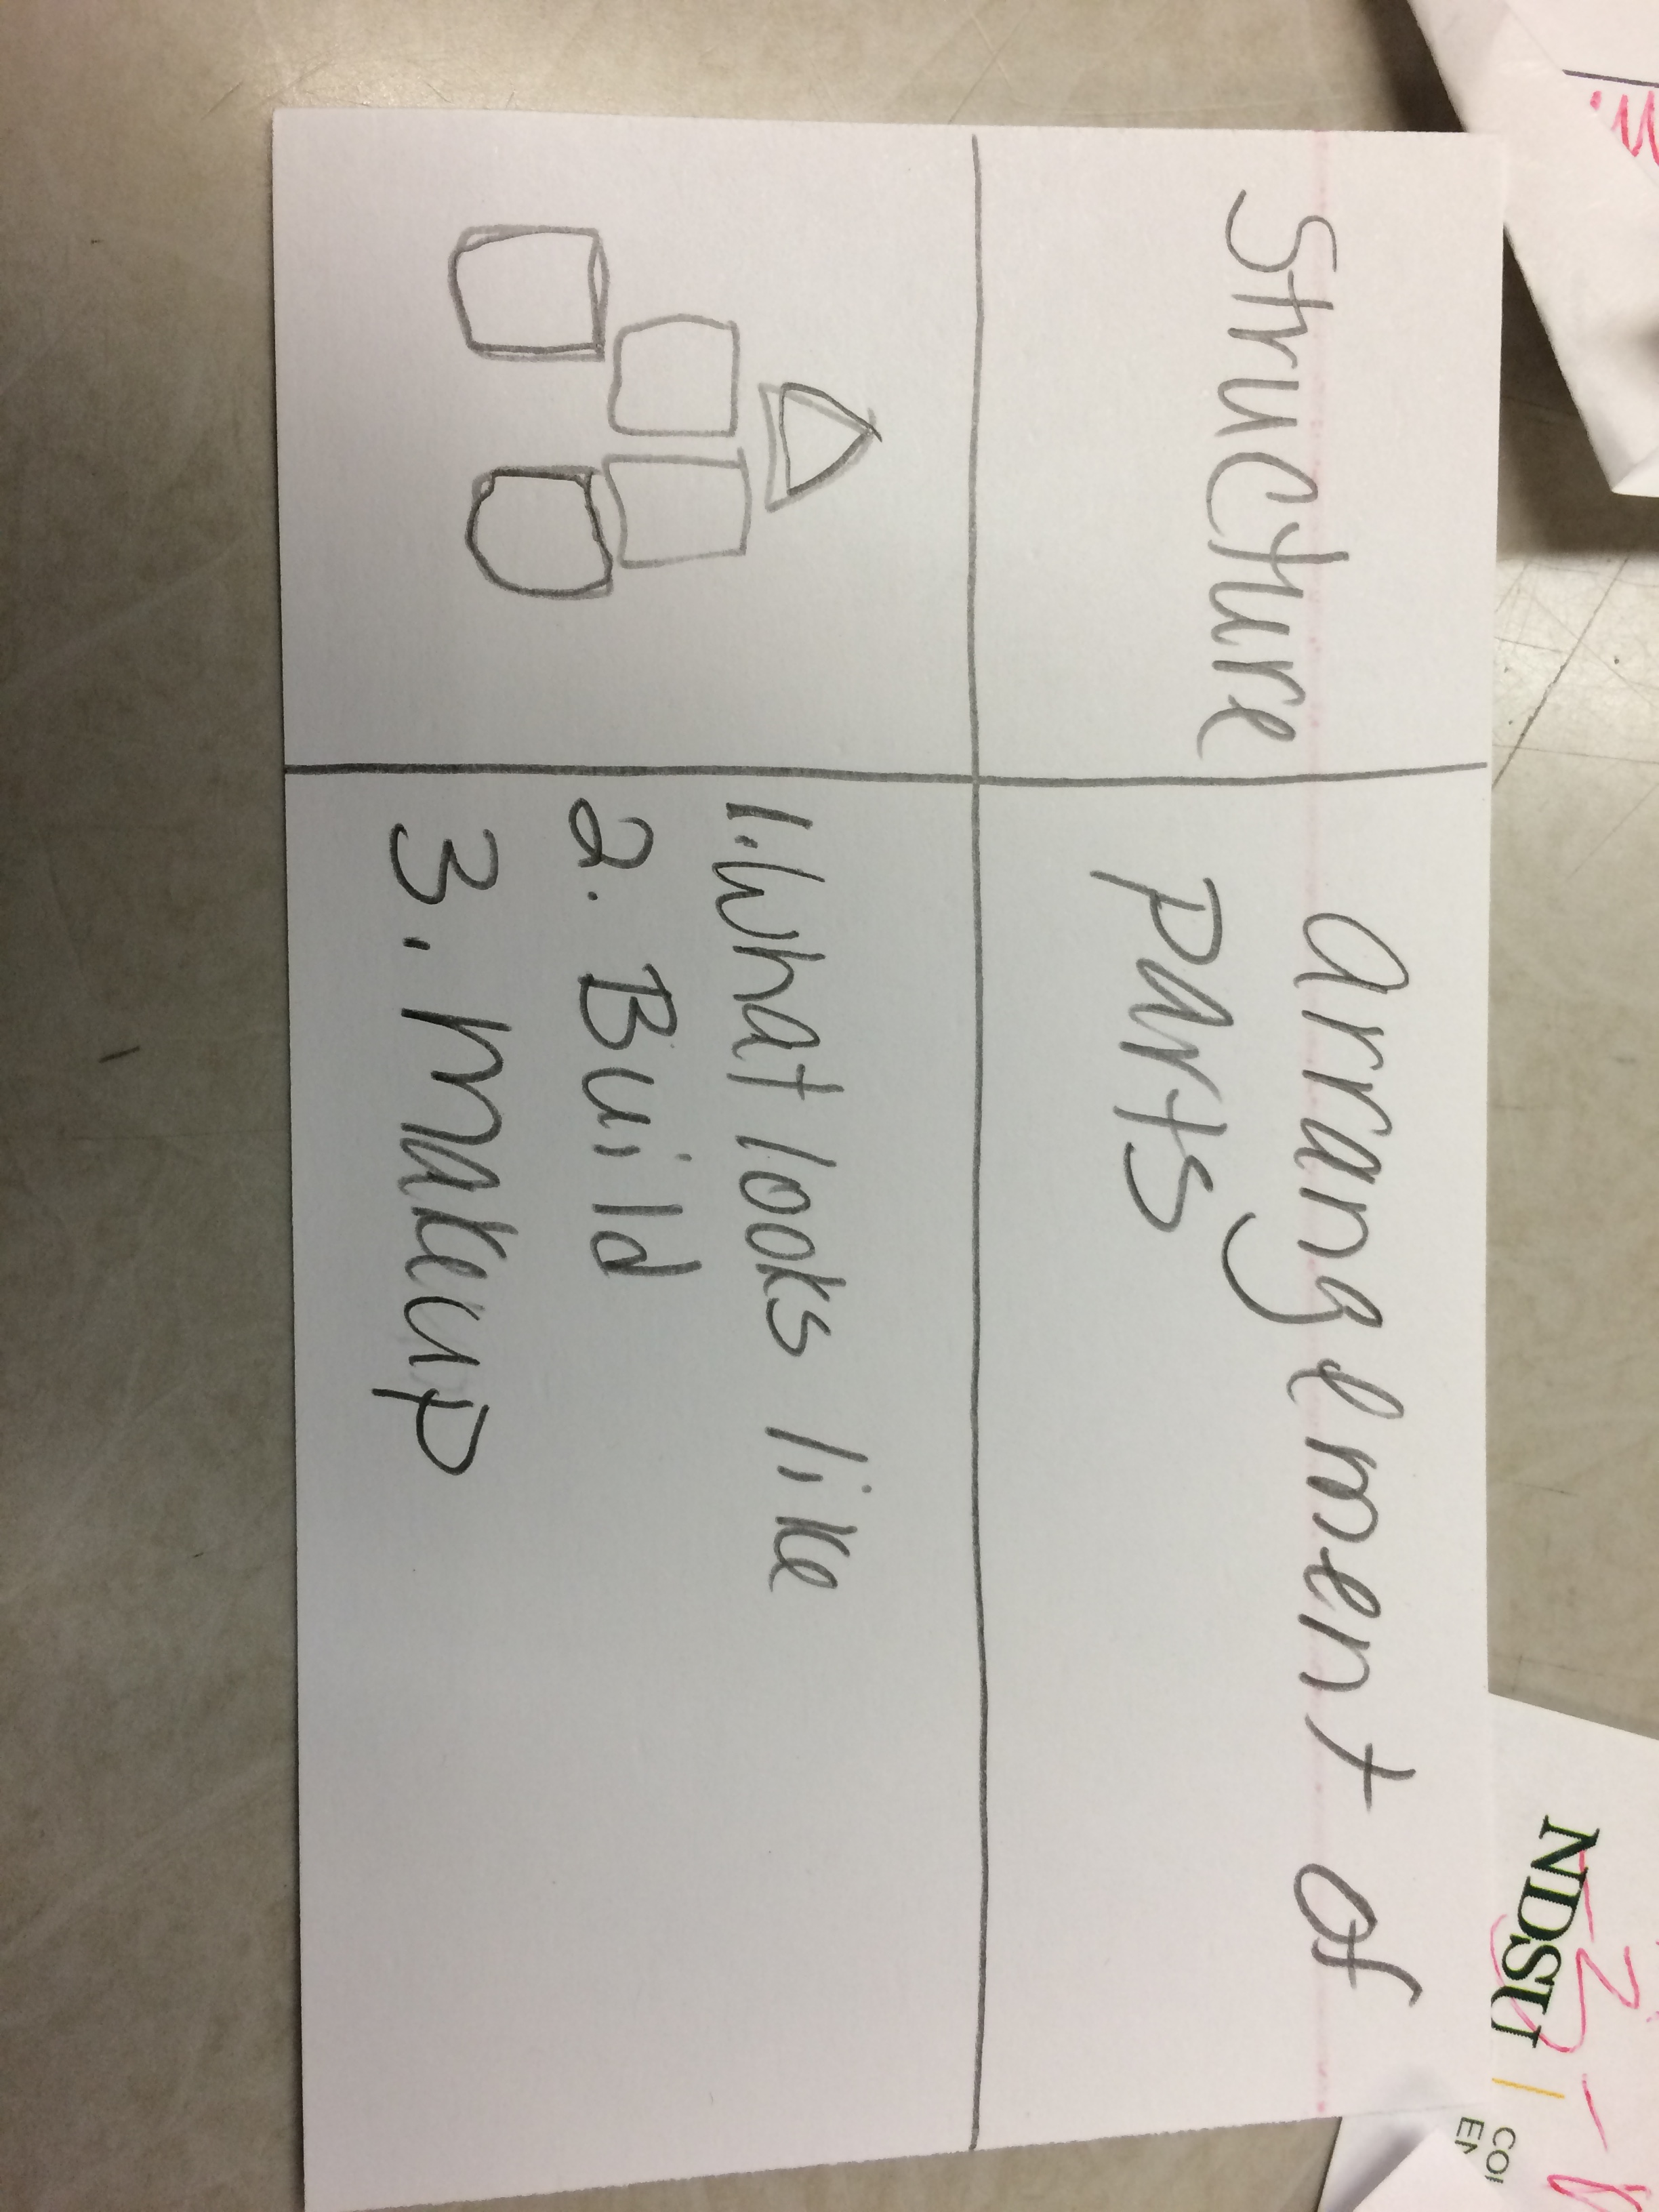 Structure
arrangement of
parts
1. What looks like
2. Build
3. Makeup
NDSU